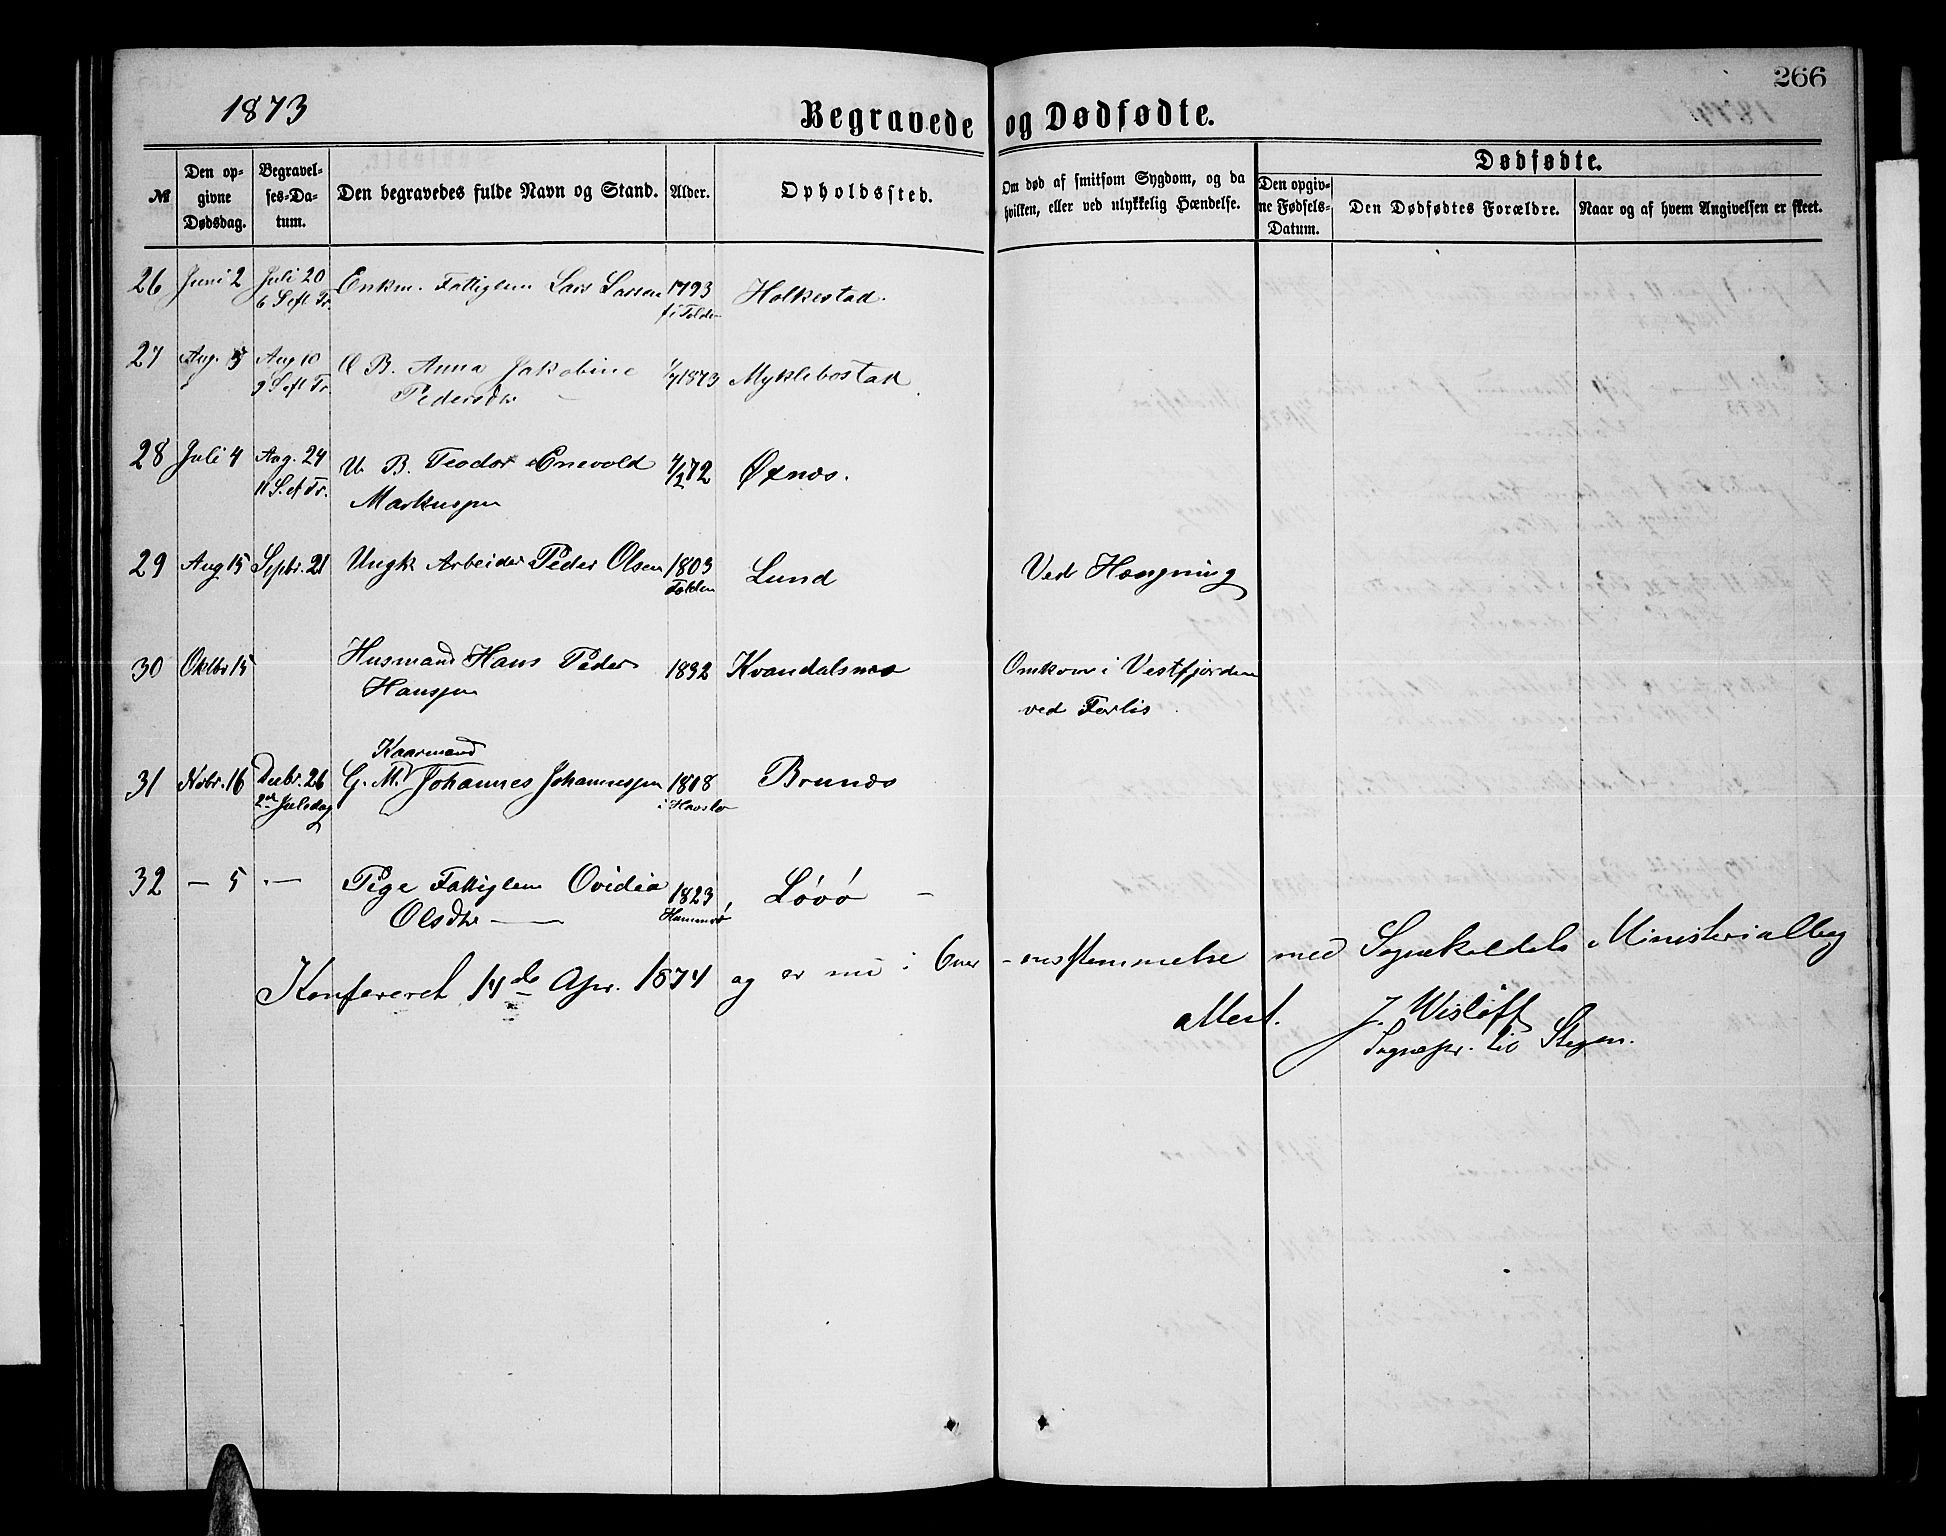 266
1873
Begravede og Dødfødte.
№
Den opgivne Dødsdag.
Begravelses-Datum.
Den begravedes fulde Navn og Stand.
Alder.
Opholdssted.
Om død af smitsom Sygdom, og da hvilken, eller ved ulykkelig Hændelse.
Dødfødte.
Den opgivne Fødsels-Datum.
Den Dødfødtes Forældre.
Naar og af hvem Angivelsen er skeet.
26 Juni 2 Juli 20 Enkm. Fattiglem Lars Larsen 1793 Holkestad.
6 S. eft Tr. f i Folden
27 Aug. Aug 10 B. Anna Jakobine 1873 Myklebostad
9 S. eft Tr. Pedersdtr
28 Juli 4 Aug. 24 U. B. Teodor Enevold 4/2 72 Øxnes.
11 S. ef Tr. Markussen
29 Aug 15 Sepbr. 21 Ungk Arbeider Peder Olsen 1803 Lund Ved Hængning
Folden
30 Oktbr 15 Husmand Hans Peder 1832 Kvandalsnes Omkom i Vestfjorden
Hanssen ved Forlis
Kaarmand
31 Novbr. 16 Decbr. 26 G. M. Johannes Johannessen 1808 Brunes
2den Juledag
32 — 5 — Pige Fattiglem Ovidia 1823, Løvø —
Olsdtr — Hammerø
Konfereret 14de Apr. 1874 og er nu i Over-ensstemmelse med Sognekaldets Ministerialbog
attest. J. Wisløff
Sognepr. til Stegen.